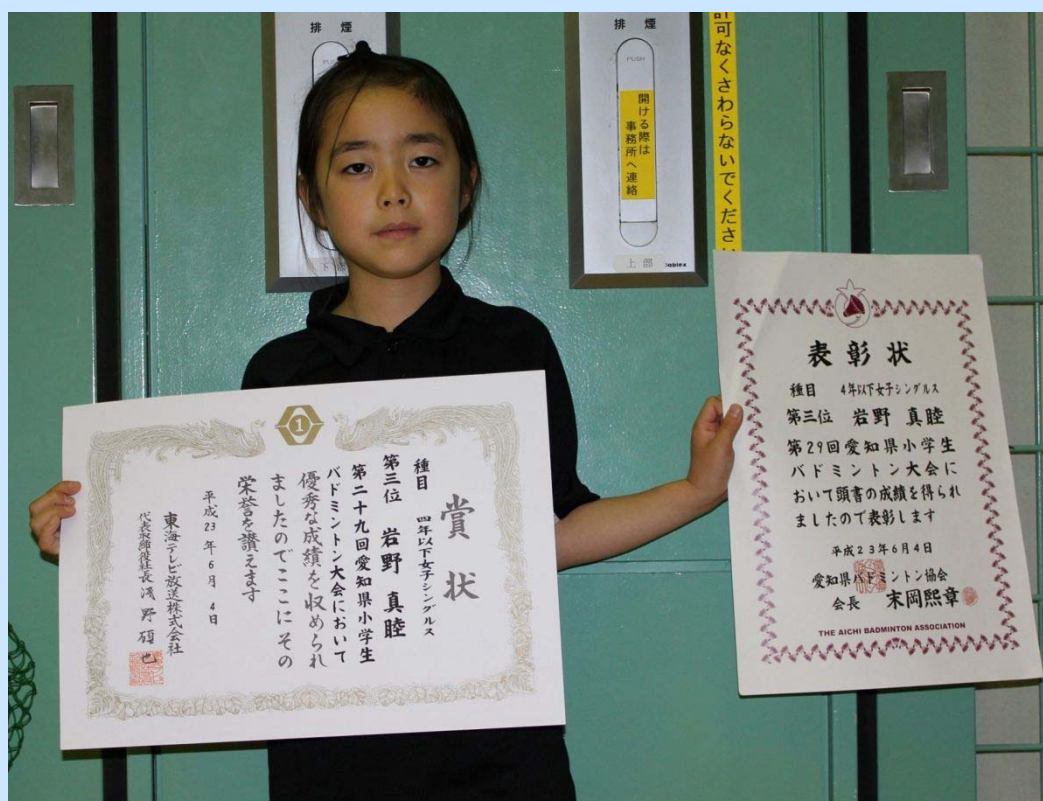 排煙
PUSH
排煙
PUSH
開ける際は
事務所へ連絡
上部
許可なくさわらないでください
賞状
種目 四年以下女子シングルス
第三位 岩野 真睦
第二十九回愛知県小学生
バドミントン大会において
優秀な成績を収められ
ましたのでここにその
栄誉を讃えます
平成23年6月4日
東海テレビ放送株式会社
代表取締役社長 浅野碩也
表彰状
種目 4年以下女子シングルス
第三位 岩野 真睦
第29回愛知県小学生
バドミントン大会に
おいて頭書の成績を得られ
ましたので表彰します
平成23年6月4日
愛知県バドミントン協会
会長 末岡熙章
THE AICHI BADMINTON ASSOCIATION